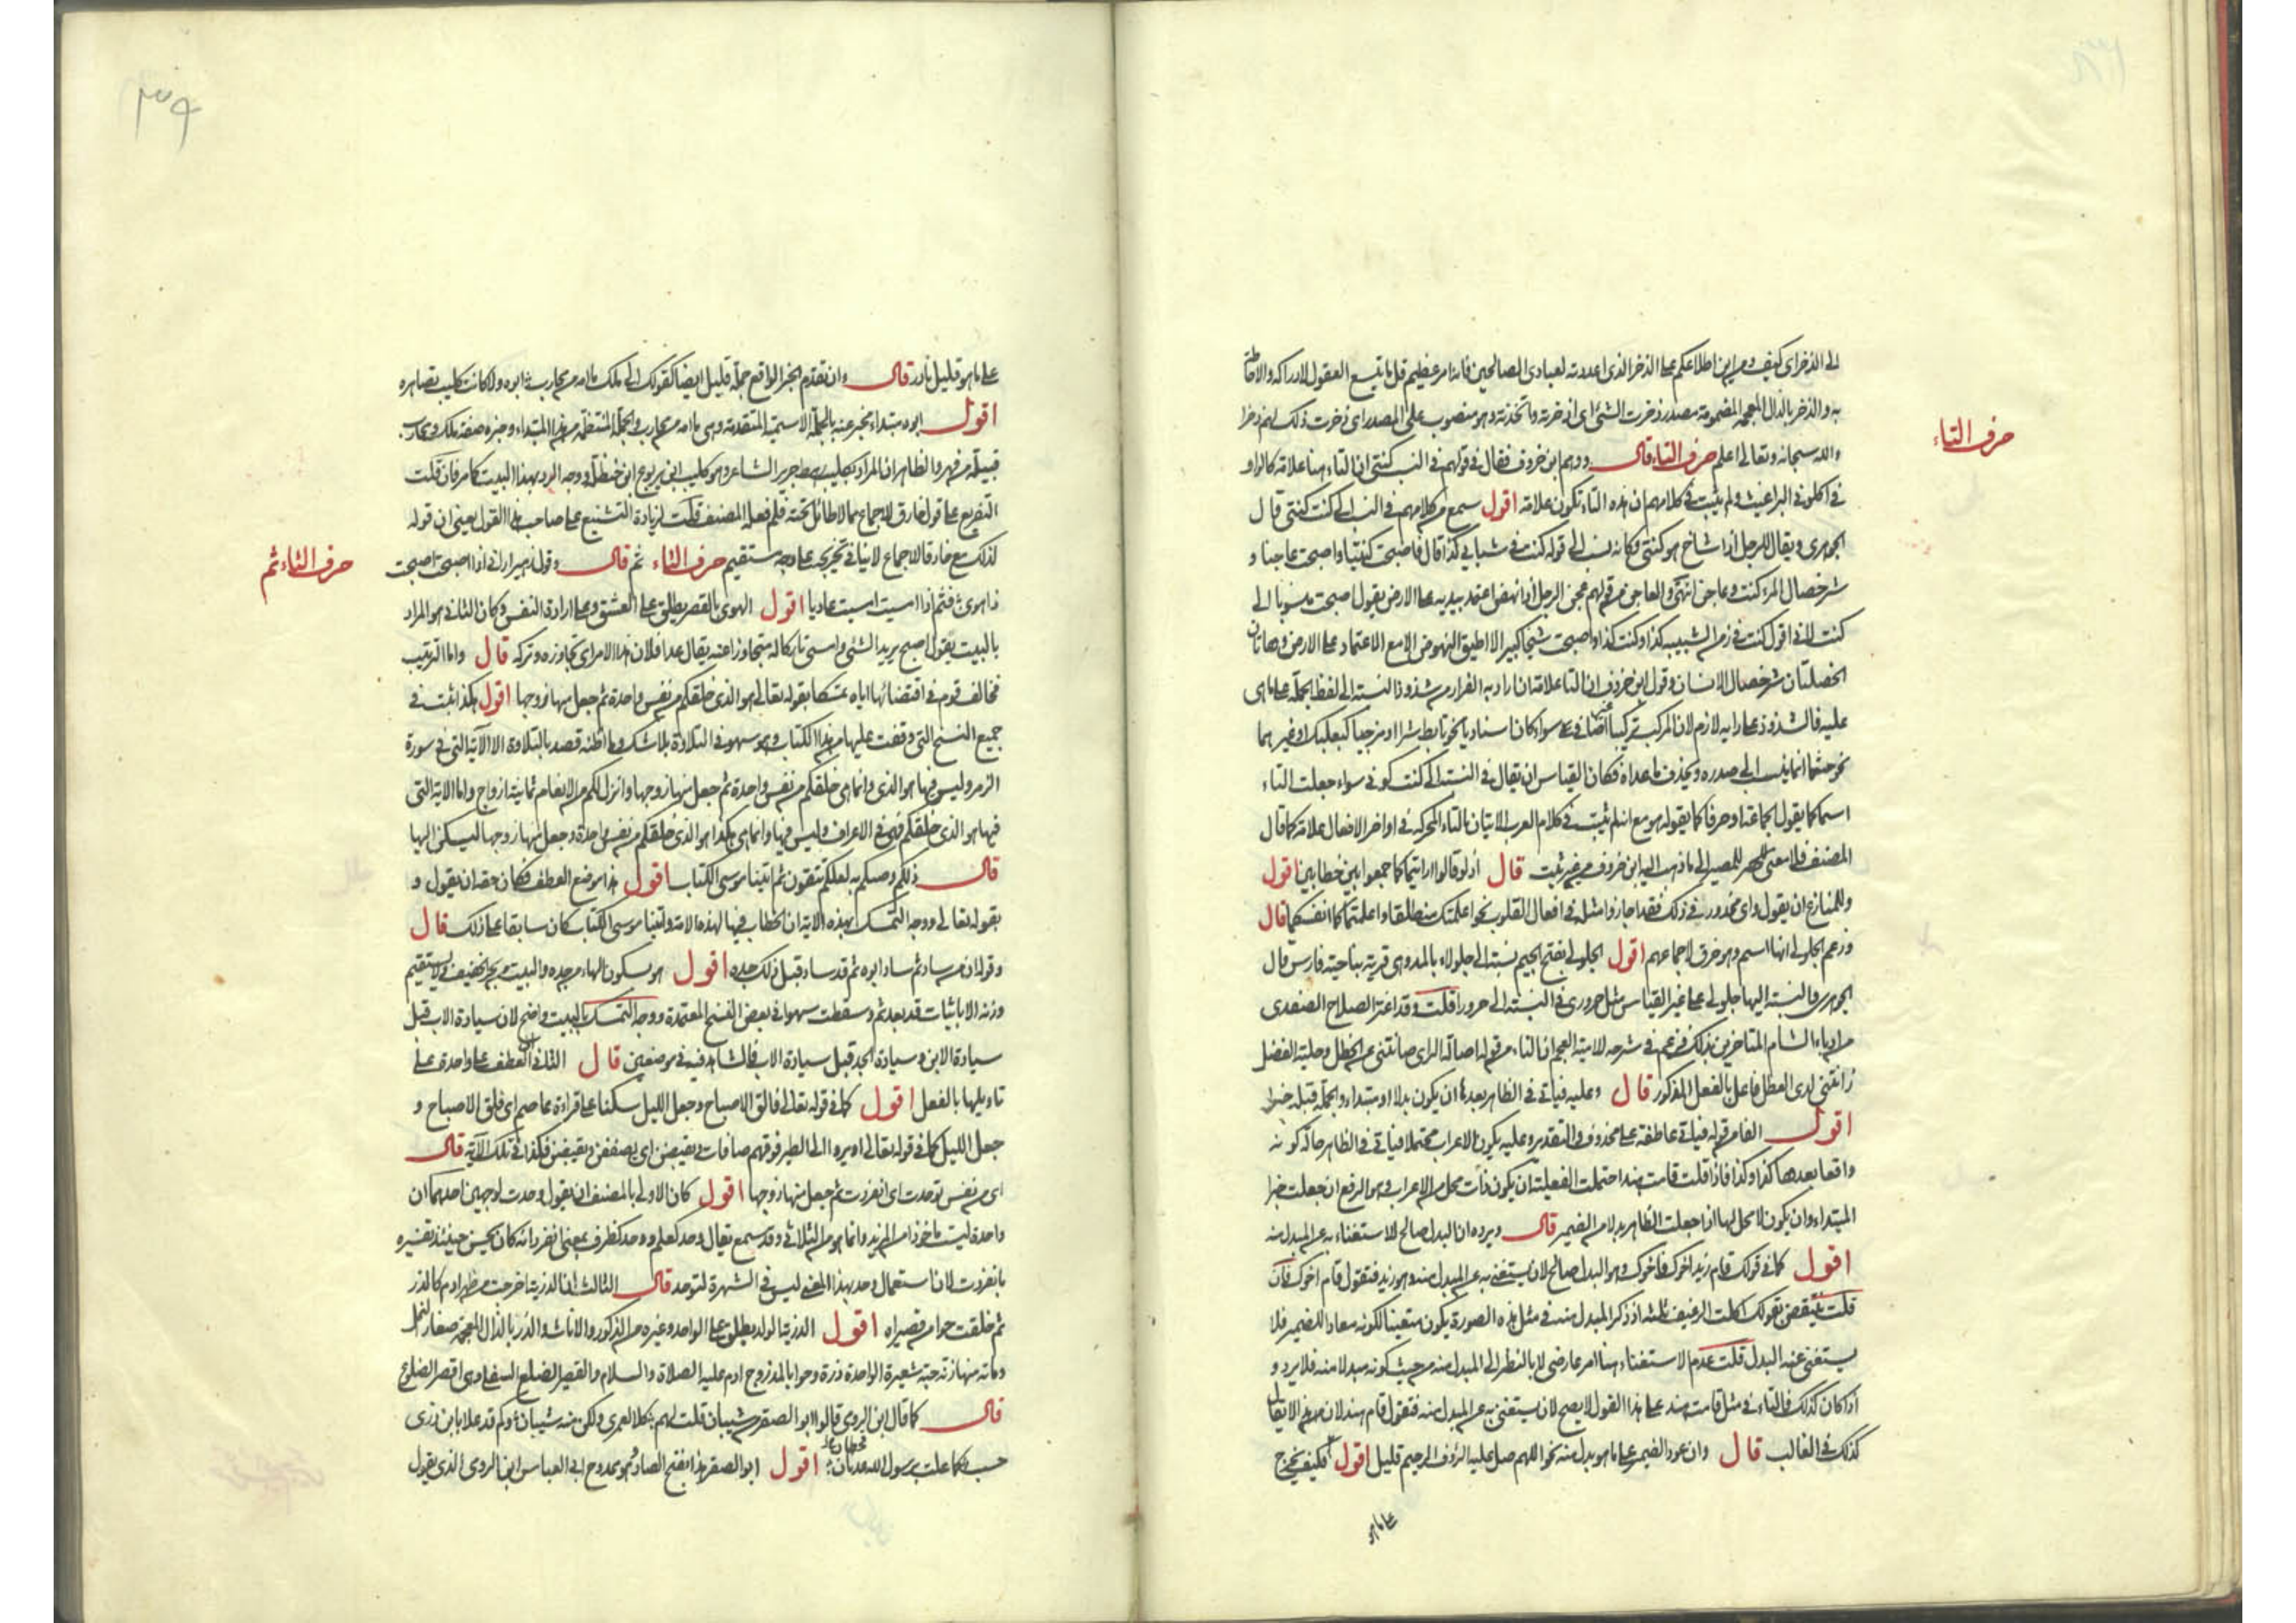 حرف التاء
الى الذخر اى كيف ومن اين اطلاعكم على الذخر الذى اعددته لعبادى الصالحين فانه امر عظيم قل ما تتسع العقول لادراكه والاحاطة
به والذخر بالذال المعجمة المضمومة مصدر ذخرت الشئ اى ادخرته واتخذته وهو منصوب على المصدر اى ذخرت ذلك لهم ذخرا
والله سبحانه وتعالى اعلم حرف التاء قال ووهم ابن خروف فقال فى قولهم فى النسب كنتى ان التاء هنا علامة كالواو
فى اكلونى البراغيث ولم يثبت فى كلامهم ان هذه التاء تكون علامة اقول سمع من كلامهم فى النسب الى كنت كنتى قال
الجوهرى ويقال للرجل اذا شاخ هو كنتى وكانه نسب الى قوله كنت فى شبابى كذا قال فاصبحت كنتيا واصبحت عاجنا و
شر خصال المرء كنت وعاجن انتهى والعاجن من قولهم عجن الرجل اذا نهض اعتمد بيديه على الارض يقول اصبحت منسوبا الى
كنت لانى اقول كنت فى زمن الشبيب كذا وكنت كذا واصبحت شيخا كبيرا لا اطيق النهوض الا مع الاعتماد على الارض وهاتان
الخصلتان شر خصال الانسان وقول ابن خروف ان التا علامة ان اراد به الفرار من شذوذ النسبة الى لفظ الجملة على ما هى
عليه فالشذوذ على رايه لازم لان المركب تركيبا سواء كان اسناديا نحو تابط شرا او مزجيا كبعلبك او غيرهما
نحو حيثما انما ينسب الى صدره ويحذف ما عداه فكان القياس ان يقال فى النسبة الى كنت كونى سواء جعلت التاء
اسما كما يقول الجماعة او حرفا كما يقوله هو مع انه لم يثبت فى كلام العرب الاتيان بالتاء المتحركة فى اواخر الافعال علامة كما قال
المصنف فلا معنى للمصير الى ما ذهب اليه ابن خروف من غير ثبت قال اذ لو قالوا ارايتماكما جمعوا بين خطابين اقول
وللمنازع ان يقول واى محذور فى ذلك فقد اجازوا مثله فى افعال القلوب نحو اعلمتك منطلقا واعلمتماكما انفسكما قال
وزعم الجلولى انها اسم وهو خرق لاجماعهم اقول الجلولى بفتح الجيم نسبة الى جلولاء بالمد وهى قرية بناحية فارس قال
الجوهرى والنسبة اليها جلولى على غير القياس مثل حرورى فى النسبة الى حرورا قلت وقد اغتر الصلاح الصفدى
من ادباء الشام المتاخرين بذلك فزعم فى شرحه للامية العجم ان التاء من قوله اصالة الراى صانتنى عن الخطل وحلية الفضل
زانتنى لدى العطل فاعل بالفعل المذكور قال وعليه فياتى فى الظاهر بعدها ان يكون بدلا او مبتداء والجملة قبله خبرا
اقول الفا من قوله فياتى عاطفة على محذوف فى التقدير وعليه يكون الاعراب محتملا فياتى فى الظاهر حالة كونه
واقعا بعدها كذا وكذا فاذا قلت قامت هند احتملت الفعلية ان يكون ذات محل من الاعراب وهو الرفع ان جعلت خبرا
المبتداء وان يكون لا محل لها اذا جعلت الظاهر بدلا من الضمير قال ويرده ان البدل صالح للاستغناء به عن المبدل منه
اقول كما فى قولك قام زيد اخوك فاخوك وهو البدل صالح لان يستغنى به عن المبدل منه وهو زيد فتقول قام اخوك فان
قلت ينتقض بقولك اكلت الرغيف ثلثه اذ ذكر المبدل منه فى مثل هذه الصورة يكون متعينا لكونه معادا للضمير فلا
يستغنى عنه البدل قلت عدم الاستغناء هنا امر عارض لا بالنظر الى المبدل منه من حيث كونه مبدلا منه فلا يرد و
اذا كان كذلك فالتاء فى مثل قامت هند على هذا القول لا يصح لان يستغنى به عن المبدل منه فتقول قام هند لان لا يقال
كذلك فى الغالب قال وان عود الضمير على ما هو بدل منه نحو اللهم صل عليه الرؤف الرحيم قليل اقول فكيف يخرج
على ما هو
٣٩
على ما هو قليل نادر قال وان تقدم الخبر الواقع جملة قليل ايضا كقولك الى ملك ما امه من محارب ابوه ولا كانت كليب تصاهره
اقول ابوه مبتداء مخبر عنه بالجملة الاسمية المتقدمة وهى ما امه من محارب والجملة المنتظمة من هذا المبتداء وخبره صفة ملك ومحارب
قبيلة من فهر والظاهر ان المراد بكليب رهط جرير الشاعر وهو كليب ابن يربوع ابن حنظلة ووجه الرد بهذا البيت كما مر فان قلت
التفريع على قول خارق للاجماع مما لا طائل تحته فلم فعله المصنف قلت لزيادة التشنيع على صاحب هذا القول يعنى ان قوله
كذلك مع خارقا لاجماع لا ياتى تخريجه على وجه مستقيم حرف الثاء ثم قال وقول زهير ارانى اذا اصبحت اصبحت
حرف الثاء ثم
ذا هوى فثم اذا امسيت امسيت عاديا اقول الهوى بالقصر يطلق على العشق وعلى ارادة النفس وكان الثانى هو المراد
بالبيت يقول اصبح يريد الشئ وامسى تاركا له متجاوزا عنه يقال عدا فلان هذا الامر اى تجاوزه وتركه قال واما الترتيب
فخالف قوم فى اقتضائها اياه تمسكا بقوله تعالى هو الذى خلقكم من نفس واحدة ثم جعل منها زوجها اقول هكذا ثبت فى
جميع النسخ التى وقفت عليها من هذا الكتاب وهو سهو فى التلاوة بلا شك وما اظنه قصد بالتلاوة الا الآية التى فى سورة
الزمر وليس فيها هو الذى وانما هى خلقكم من نفس واحدة ثم جعل منها زوجها وانزل لكم من الانعام ثمانية ازواج واما الاية التى
فيها هو الذى خلقكم فهى فى الاعراف وليس فيها وانما هى هكذا هو الذى خلقكم من نفس واحدة وجعل منها زوجها ليسكن اليها
قال ذلكم وصيكم به لعلكم تتقون ثم اتينا موسى الكتاب اقول هذا موضع العطف فكان حقه ان يقول و
بقوله تعالى ووجه التمسك بهذه الاية ان الخطاب فيها لهذه الامة واتينا موسى الكتاب كان سابقا على ذلك قال
وقوله ان من ساد ثم ساد ابوه ثم قد ساد قبل ذلك جده اقول هو بسكون الهاء من جده والبيت من بحر الخفيف ولا يستقيم
وزنه الا باثبات قد بعد ثم وسقطت سهوا فى بعض النسخ المعتمدة ووجه التمسك بالبيت واضح لان سيادة الاب قبل
سيادة الابن وسيادة الجد قبل سيادة الاب فالشاهد فيه فى موضعين قال الثانى ان العطف على واحدة على
تاويلها بالفعل اقول كما فى قوله تعالى فالق الاصباح وجعل الليل سكنا على قراءة عاصم اى فلق الاصباح و
جعل الليل كما فى قوله تعالى اولم يروا الى الطير فوقهم صافات ويقبضن اى يصففن ويقبضن فكذا فى تلك الآية قال
اى من نفس توحدت اى انفردت ثم جعل منها زوجها اقول كان الاولى بالمصنف ان يقول وحدت لوجهين احدهما ان
واحدة ليست ماخوذا من المزيد وانما هو من الثلاثى وقد سمع يقال وحد كعلم ووحد كظرف بمعنى انفرد لانه كان يحسن حينئذ تفسيره
بانفردت لان استعمال وحد بهذا المعنى ليس فى الشهرة لتوحد قال الثالث ان الذرية اخرجت من ظهر ادم كالذر
ثم خلقت حوا من قصيراه اقول الذرية الولد يطلق على الواحد وغيره من الذكور والاناث والذر بالذال المعجمة صغار النمل
ومائة منها زنة حبة شعيرة الواحدة ذرة وحوا بالمد زوج ادم عليه الصلاة والسلام والقصير الضلع السفلى وهى اقصر الضلوع
قال كما قال ابن الرومى قالوا ابو الصقر من شيبان قلت لهم كلا لعمرى ولكن منه شيبان وكم قد علا باب ن ذرى
حسب كما علت برسول الله عدنان اقول ابو الصقر هذا بفتح الصاد هو ممدوح ابى العباس ابن الرومى الذى يقول